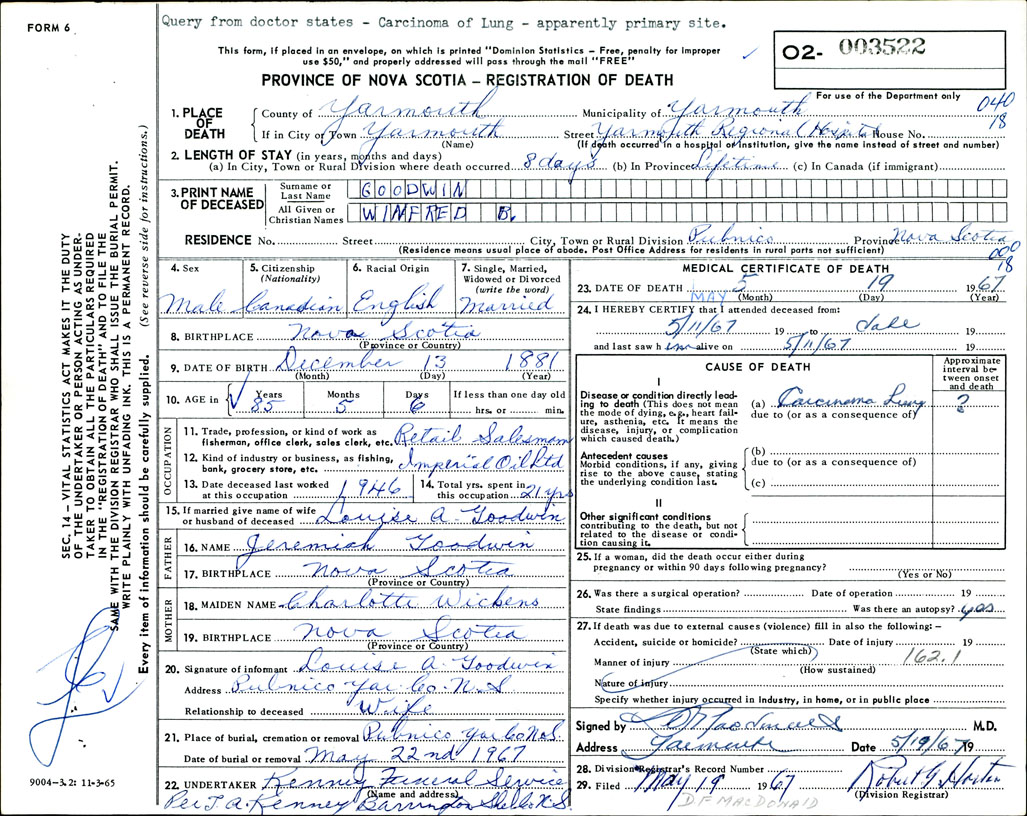 FORM 6
Query from doctor states - Carcinoma of Lung - apparently primary site.
This form, if placed in an envelope, on which is printed "Dominion Statistics – Free, penalty for improper
use $50," and properly addressed will pass through the mail "FREE"
PROVINCE OF NOVA SCOTIA – REGISTRATION OF DEATH
O2- 003522
For use of the Department only
040
18
SEC. 14 – VITAL STATISTICS ACT MAKES IT THE DUTY
OF THE UNDERTAKER OR PERSON ACTING AS UNDER-
TAKER TO OBTAIN ALL THE PARTICULARS REQUIRED
IN THE "REGISTRATION OF DEATH" AND TO FILE THE
SAME WITH THE DIVISION REGISTRAR WHO SHALL ISSUE THE BURIAL PERMIT.
WRITE PLAINLY WITH UNFADING INK. THIS IS A PERMANENT RECORD.
Every item of information should be carefully supplied. (See reverse side for instructions.)
1. PLACE OF DEATH
County of Yarmouth Municipality of Yarmouth
If in City or Town Yarmouth Street Yarmouth Regional Hospital House No.
(Name) (If death occurred in a hospital or institution, give the name instead of street and number)
2. LENGTH OF STAY (in years, months and days)
(a) In City, Town or Rural Division where death occurred 8 days (b) In Province Lifetime (c) In Canada (if immigrant)
3. PRINT NAME OF DECEASED
Surname or Last Name GOODWIN
All Given or Christian Names WINFRED B.
RESIDENCE No. Street City, Town or Rural Division Pubnico Province Nova Scotia
(Residence means usual place of abode. Post Office Address for residents in rural parts not sufficient)
000
18
4. Sex Male
5. Citizenship (Nationality) Canadian
6. Racial Origin English
7. Single, Married, Widowed or Divorced (write the word) Married
8. BIRTHPLACE Nova Scotia
(Province or Country)
9. DATE OF BIRTH December 13 1881
(Month) (Day) (Year)
10. AGE in Years 85 Months 5 Days 6 If less than one day old hrs. or min.
OCCUPATION
11. Trade, profession, or kind of work as fisherman, office clerk, sales clerk, etc. Retail Salesman
12. Kind of industry or business, as fishing, bank, grocery store, etc. Imperial Oil Ltd
13. Date deceased last worked at this occupation 1946
14. Total yrs. spent in this occupation 21 yrs
15. If married give name of wife or husband of deceased Louise A. Goodwin
FATHER
16. NAME Jeremiah Goodwin
17. BIRTHPLACE Nova Scotia
(Province or Country)
MOTHER
18. MAIDEN NAME Charlotte Wickens
19. BIRTHPLACE Nova Scotia
(Province or Country)
20. Signature of informant Louise A. Goodwin
Address Pubnico Yar. Co. N.S
Relationship to deceased Wife
21. Place of burial, cremation or removal Pubnico Yar Co N.S.
Date of burial or removal May 22nd 1967
22. UNDERTAKER Kenney Funeral Service
(Name and address)
Per T. A. Kenney Barrington N.S.
9004–3.2: 11-3-65
MEDICAL CERTIFICATE OF DEATH
23. DATE OF DEATH MAY 5 19 1967
(Month) (Day) (Year)
24. I HEREBY CERTIFY that I attended deceased from:
5/11/67 19 to date 19
and last saw h im alive on 5/11/67 19
CAUSE OF DEATH
Approximate interval between onset and death
I
Disease or condition directly leading to death (This does not mean the mode of dying, e.g., heart failure, asthenia, etc. It means the disease, injury, or complication which caused death.)
(a) Carcinoma Lung ?
due to (or as a consequence of)
Antecedent causes
Morbid conditions, if any, giving rise to the above cause, stating the underlying condition last.
(b)
due to (or as a consequence of)
(c)
II
Other significant conditions
contributing to the death, but not related to the disease or condition causing it.
25. If a woman, did the death occur either during
pregnancy or within 90 days following pregnancy?
(Yes or No)
26. Was there a surgical operation? Date of operation 19
State findings Was there an autopsy? yes
27. If death was due to external causes (violence) fill in also the following: –
Accident, suicide or homicide? Date of injury 19
(State which)
162.1
Manner of injury
(How sustained)
Nature of injury
Specify whether injury occurred in industry, in home, or in public place
Signed by M.D.
Address Yarmouth Date 5/19/67 19
28. Division Registrar's Record Number
29. Filed May 19 1967 Robert G. Horton
(Division Registrar)
D F MACDONALD